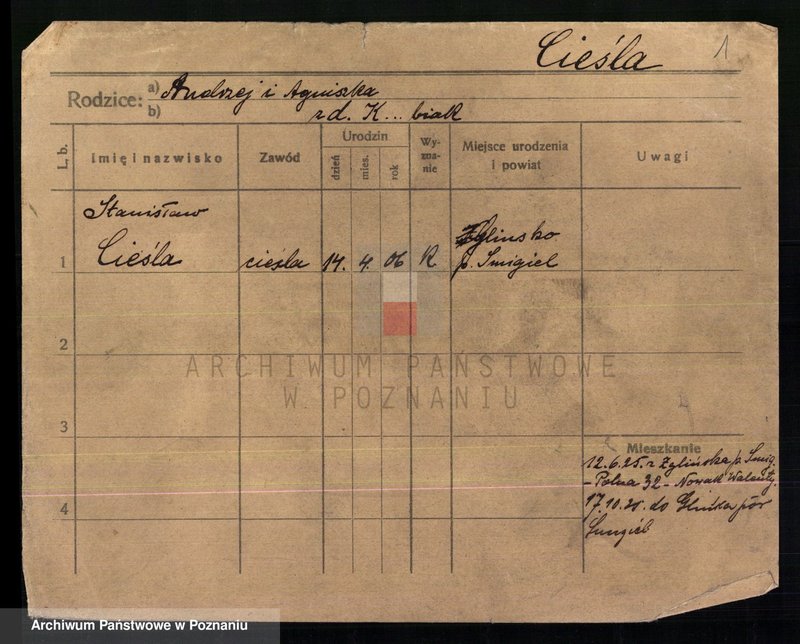 Cieśla 1
Rodzice: a) Andrzej i Agniszka
b) zd. K...biak
L. b.
Imię i nazwisko
Zawód
Urodzin
dzień
mies.
rok
Wy-
zna-
nie
Miejsce urodzenia
i powiat
Uwagi
1
Stanisław
Cieśla
cieśla
14.
4.
06
K
Glinsko
p. Smigiel
2
3
4
Mieszkanie
12.6.25. z p. Smig.
- Polna 32 - Nowak Walenty.
17.10.25. do pow
ARCHIWUM PAŃSTWOWE
W POZNANIU
Archiwum Państwowe w Poznaniu